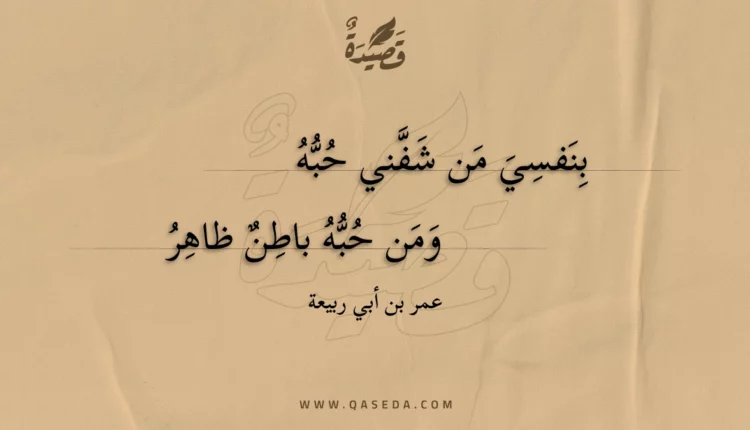 قَصِيدَةٌ
بِنَفسِيَ مَن شَفَّني حُبُّهُ
وَمَن حُبُّهُ باطِنٌ ظاهِرُ
عمر بن أبي ربيعة
WWW.QASEDA.COM